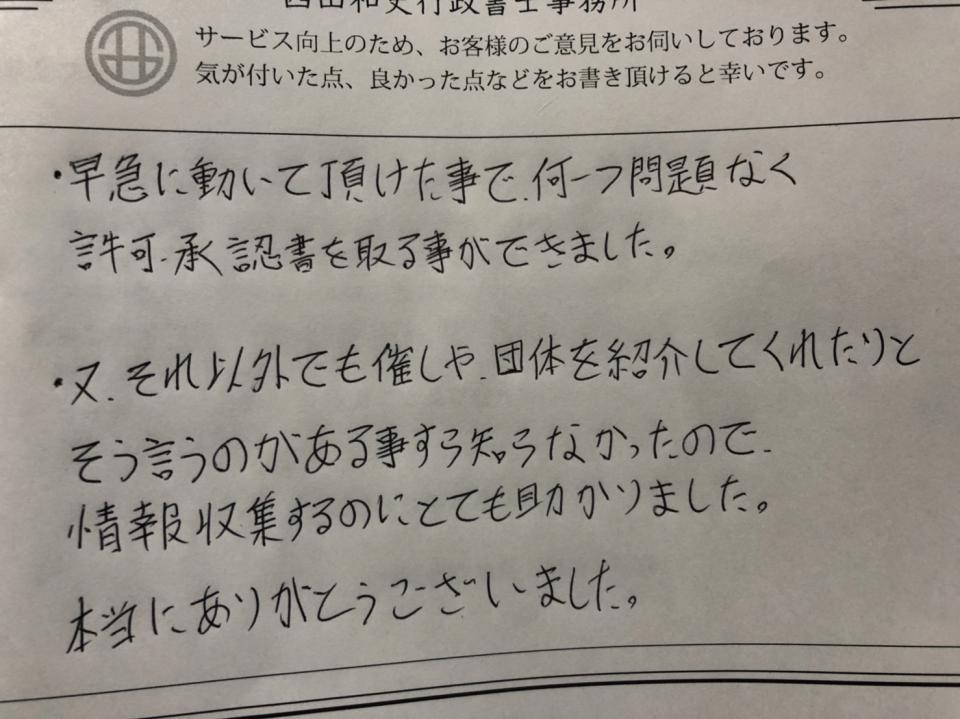 行政書士事務所
サービス向上のため、お客様のご意見をお伺いしております。
気が付いた点、良かった点などをお書き頂けると幸いです。
・早急に動いて頂けた事で、何一つ問題なく
許可、承認書を取る事ができました。
・又、それ以外でも催しや、団体を紹介してくれたりと
そう言うのがある事すら知らなかったので、
情報収集するのにとても助かりました。
本当にありがとうございました。